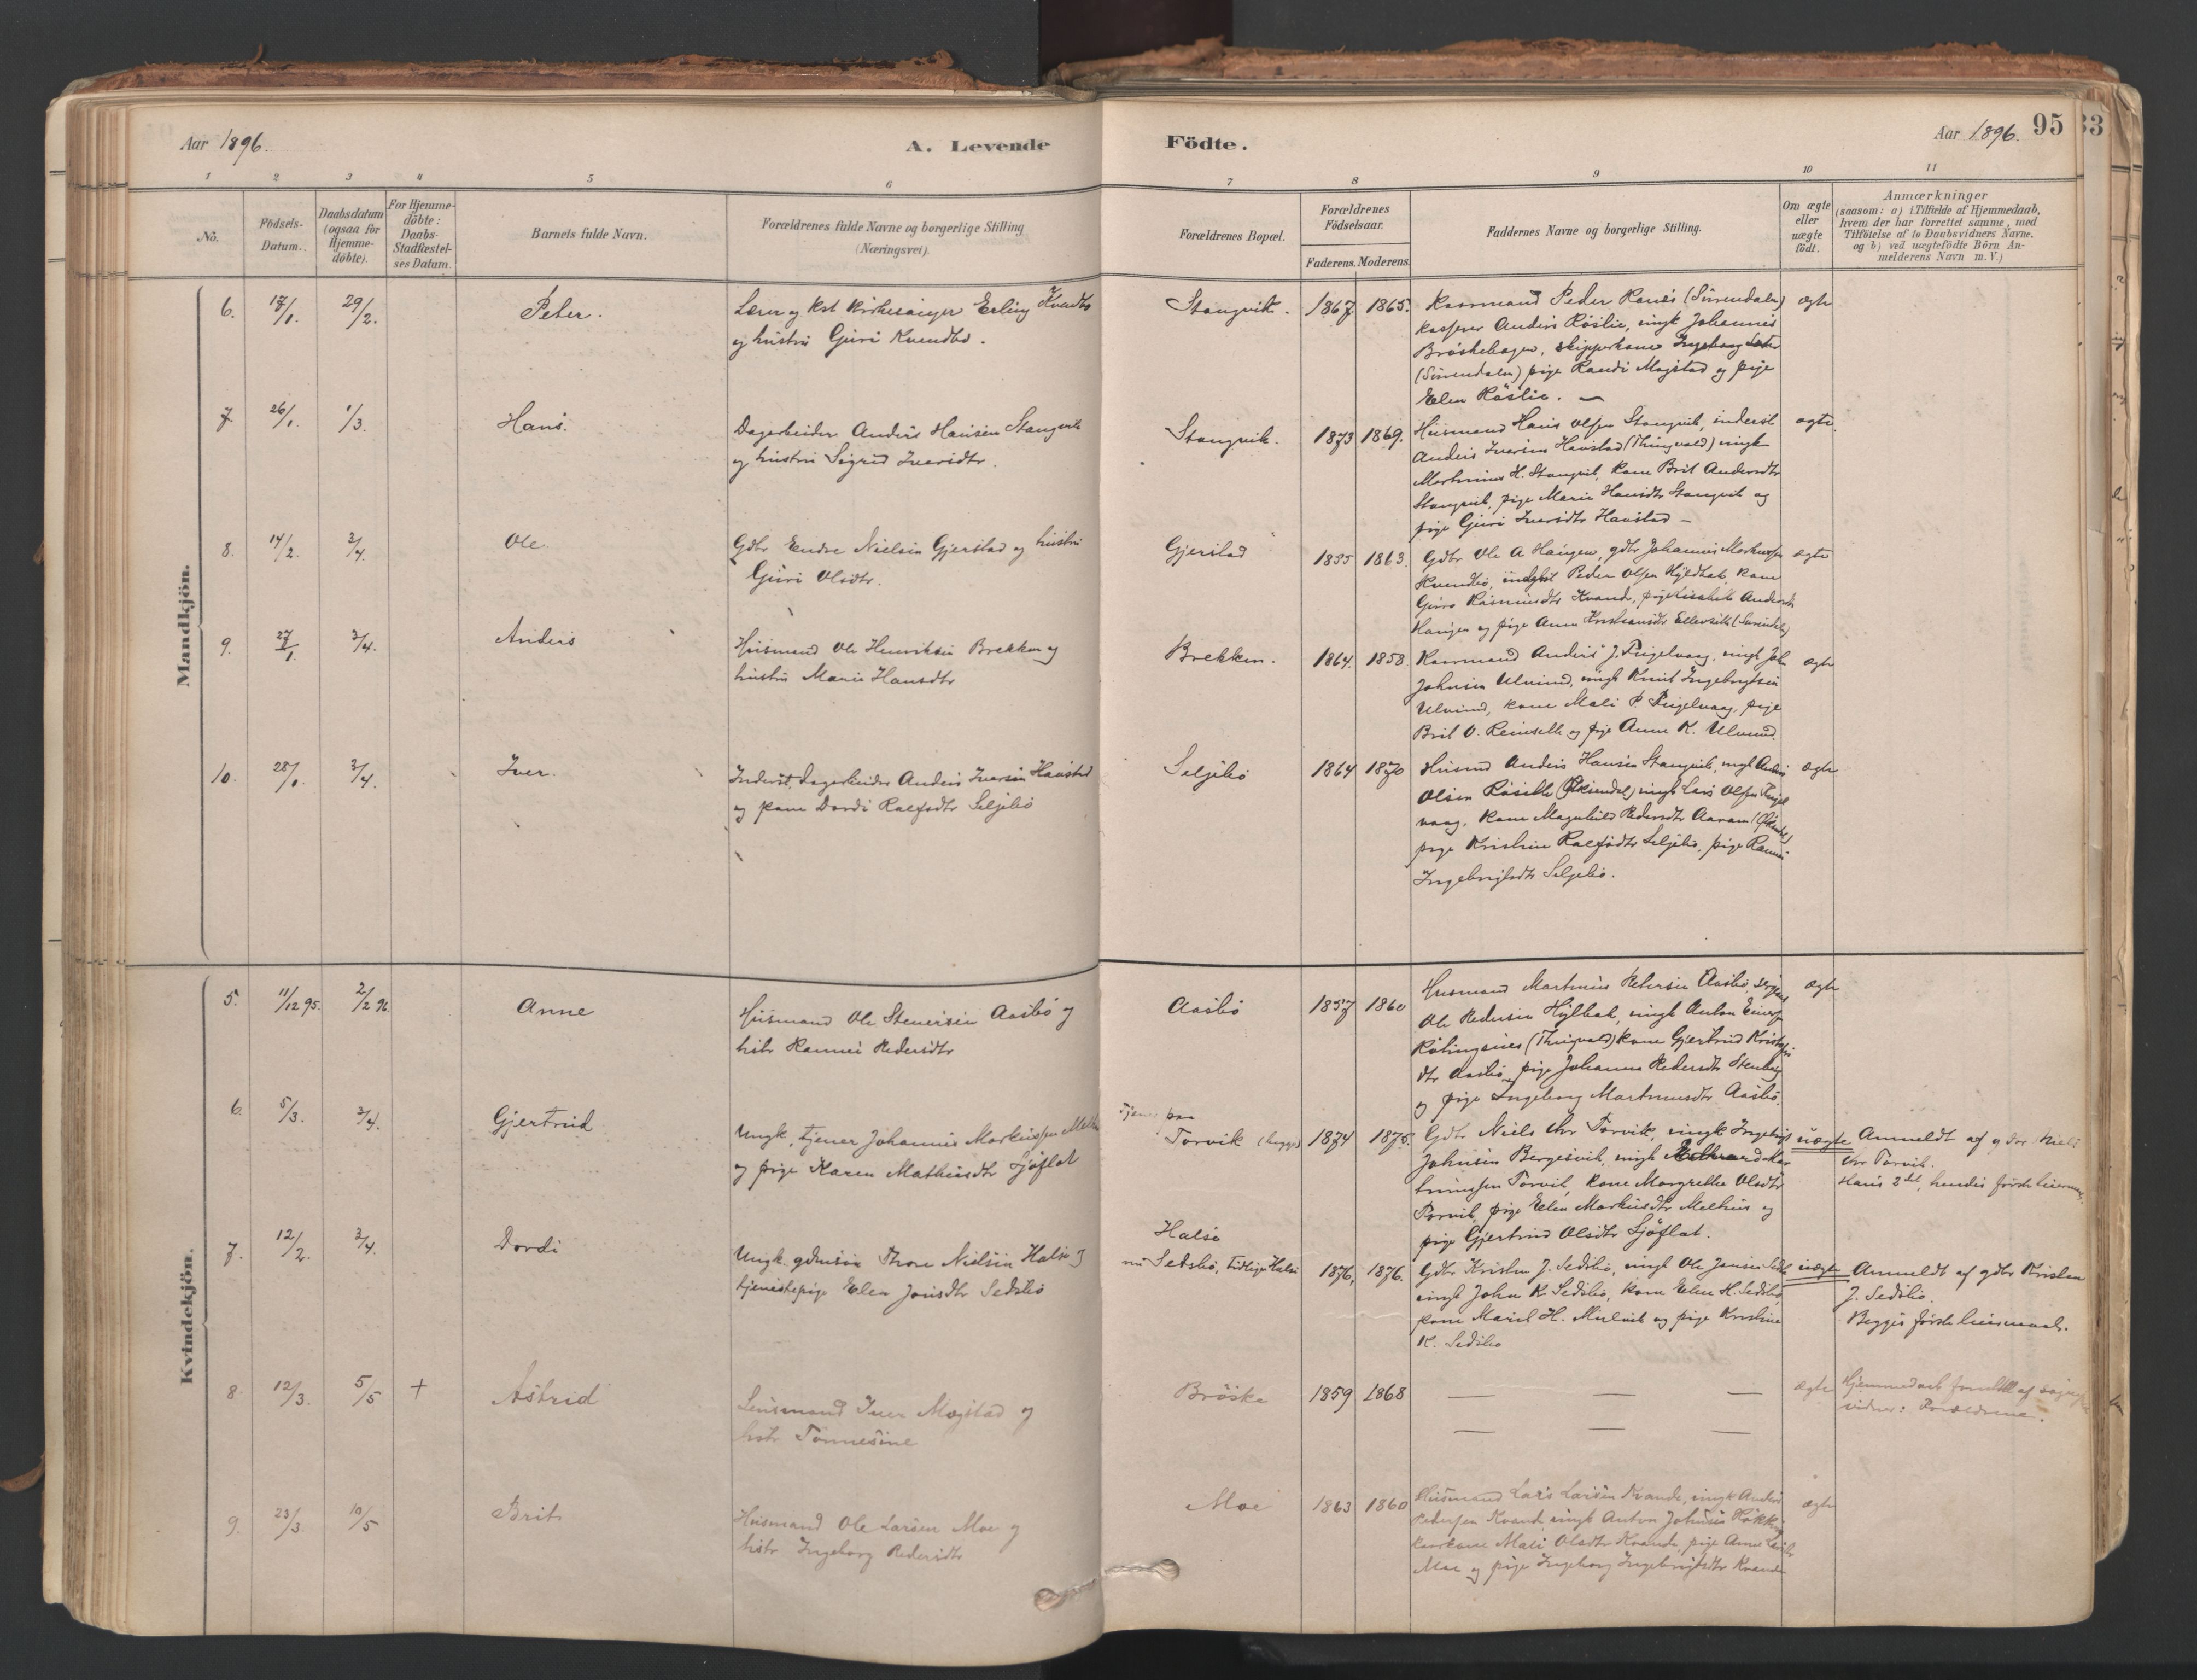 Aar 1896.
A. Levende
Födte.
Aar 1896.
95
33
1 2 3 4 5 6 7 8 9 10 11
No.
Födsels-
Datum.
Daabsdatum
(ogsaa for
Hjemme-
döbte).
For Hjemme-
döbte:
Daabs-
Stadfæstel-
ses Datum.
Barnets fulde Navn.
Forældrenes fulde Navne og borgerlige Stilling
(Næringsvei).
Forældrenes Bopæl.
Forældrenes
Födselsaar.
Faderens. Moderens.
Faddernes Navne og borgerlige Stilling.
Om ægte
eller
uægte
födt.
Anmærkninger
(saasom: a) i Tilfælde af Hjemmedaab,
hvem der har forrettet samme, med
Tilföielse af to Daabsvidners Navne,
og b) ved uægtefödte Börn An-
melderens Navn m. V.)
Mandkjön.
6. 17/1. 29/2. Peter.
Lærer og Kirkesanger Erling Kvendbø
og hustru Guri Kvendbø.
Stangvik. 1867 1865.
Kaarmand Peder Ranes (Surendalen)
Anders Röslie, ungk Johannes
Bröskehagen, skipperkone Ingeborg
(Surendalen) pige Randi Mogstad og pige
Elen Röslie. —
ægte
7. 26/1. 1/3. Hans.
Dagarbeider Anders Hansen Stangvik
og hustru Sigrid Iversdtr.
Stangvik. 1873 1869.
Husmand Hans Olsen Stangvik, inderst
Anders Iversen Havstad (Thingvold) ungk
Martinus H. Stangvik, kone Brit Andersdtr
Stangvik, pige Marie Hansdtr Stangvik og
pige Guri Iversdtr Havstad —
ægte
8. 14/2. 3/4. Ole.
Gdbr Endre Nielsen Gjerstad og hustru
Guri Olsdtr.
Gjerstad 1855 1863.
Gdbr Ole A Haugen, gdbr Johannes Markussen
Kvendbø, Peder Olsen Hyldbak, kone
Guro Rasmusdtr Kvande, pige Andersdtr
Haugen og pige Anne Kristiansdtr (Surendal)
ægte
9. 27/1. 3/4. Anders
Husmand Ole Henriksen Brekken og
hustru Marie Hansdtr
Brekken. 1864. 1858.
Kaarmand Anders J. Fugelvaag, ungk John
Johnsen Ulvund, ungk Knut Ingebrigtsen
Ulvund, kone Mali P. Fugelvaag, pige
Brit O. Reinseth og pige Anne K. Ulvund.
ægte
10. 28/1. 3/4. Iver.
Inderst, Dagarbeider Anders Iversen Havstad
og kone Dordi Roefsdtr Seljebö
Seljebö 1864 1870
Husmd Anders Hansen Stangvik, ungk Anders
Olsen (Öksendal) ungk Lars Olsen Fugel
vaag, kone Magnhild Pedersdtr (Öksendal)
pige Kristine Roefsdtr Seljebö, pige
Ingebrigtsdtr Seljebö.
ægte
Kvindekjön.
5. 11/12 95. 2/2 96. Anne
Husmand Ole Stenersen Aasbö og
hstr Pedersdtr
Aasbö 1857 1860
Husmand Martinus Petersen Aasbö,
Ole Pedersen Hylbak, ungk Anton
(Thingvold) kone Gjertrud Kristofers
dtr Aasbö, pige Johanna Pedersdtr
og pige Ingeborg Martinusdtr Aasbö.
ægte
6. 5/3. 3/4. Gjertrud
Ungk, tjener Johannes Markussen
og pige Karen Mathiusdtr Sjöflot
Tjener paa
Torvik (begge) 1874 1875.
Gdbr Niels Chr Torvik, ungk Ingebrigt
Johnsen Bergesvik, ungk
Torvik, kone Margrethe Olsdtr
Torvik, pige Elen Markusdtr Melhus og
pige Gjertrud Olsdtr Sjöflot.
uægte
Anmeldt af gdbr Niels
Chr Torvik.
Hans 2det, hendes første leiermaal.
7. 12/2. 3/4. Dordi
Ungk. Thore Nielsen Halse og
tjenestepige Elen Jonsdtr Sedsbö
Halse
nu Sedsbö, tidligere Halse 1876, 1876.
Gdbr Kristen J. Sedsbö, ungk Ole Jonsen
ungk John K. Sedsbö, kone Elen H. Sedsbö,
kone Marit H. Mulvik og pige Kristine
K. Sedsbö
uægte
Anmeldt af gdbr Kristen
J. Sedsbö.
Begges første leiermaal.
8. 12/3. 5/5 + Astrid
Lensmand Iver Mogstad og
hstr Tönnesine
Bröske 1859 1868
— — —
— — —
ægte
Hjemmedøbt
vidner: Forældrene.
9. 23/3. 10/5 Brit
Husmand Ole Larsen Moe og
hstr Ingeborg Pedersdtr
Moe 1863 1860
Husmand Lars Larsen Kvande, ungk Anders
Pedersen Kvande, ungk Anton Johnsen
Mali Olsdtr Kvande, pige Anne
Moe og pige Ingeborg Ingebrigtsdtr Kvande
ægte